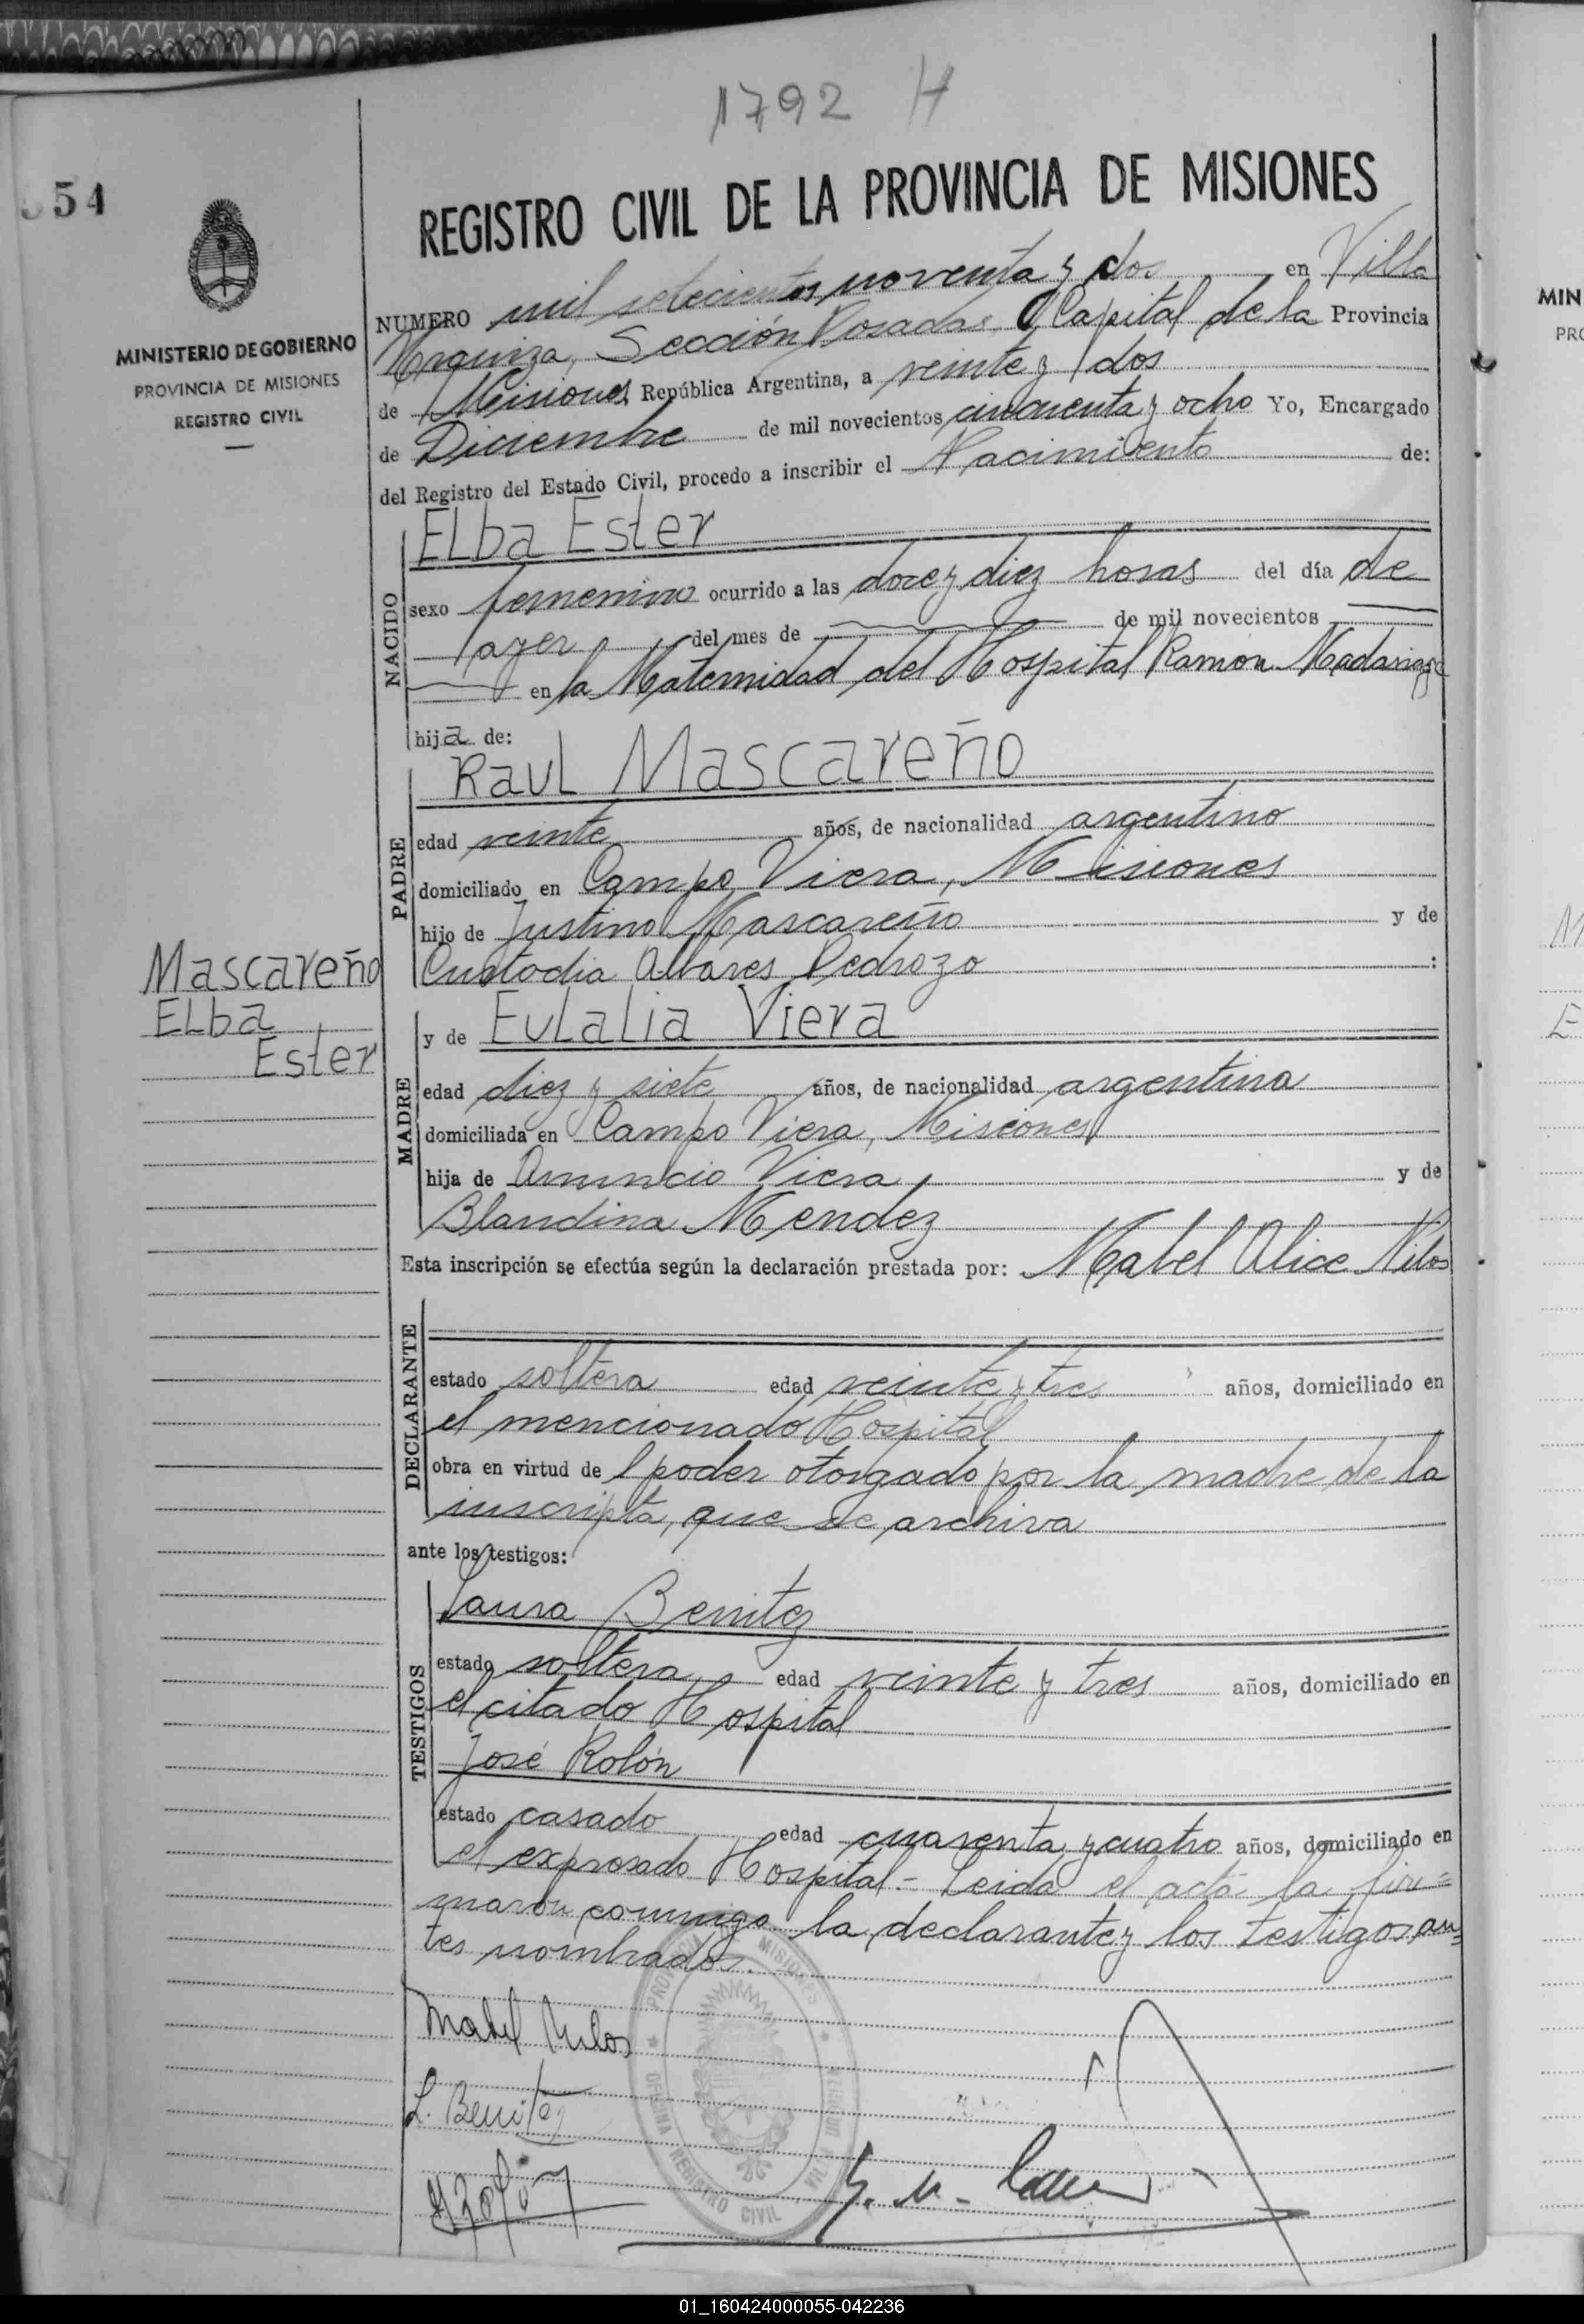 1792 H
54
MINISTERIO DE GOBIERNO
PROVINCIA DE MISIONES
REGISTRO CIVIL
REGISTRO CIVIL DE LA PROVINCIA DE MISIONES
NUMERO mil setecientos noventa y dos en Villa
Urquiza, Sección Posadas, Capital de la Provincia
de Misiones República Argentina, a veinte y dos
de Diciembre de mil novecientos cincuenta y ocho Yo, Encargado
del Registro del Estado Civil, procedo a inscribir el Nacimiento de:
NACIDO
Elba Ester
sexo femenino ocurrido a las doce y diez horas del día de
ayer del mes de de mil novecientos
en la Maternidad del Hospital Ramón Madariaga
hija de:
PADRE
Raul Mascareño
edad veinte años, de nacionalidad argentino
domiciliado en Campo Viera, Misiones
hijo de Justino Mascareño y de
Custodia Albares Pedrozo :
Mascareño
Elba
Ester
MADRE
y de Eulalia Viera
edad diez y siete años, de nacionalidad argentina
domiciliada en Campo Viera, Misiones
hija de Anuncio Viera y de
Blandina Mendez
Esta inscripción se efectúa según la declaración prestada por: Mabel Alice Milos
DECLARANTE
estado soltera edad veinte y tres años, domiciliado en
el mencionado Hospital
obra en virtud de l poder otorgado por la madre de la
inscripta, que se archiva
ante los testigos:
TESTIGOS
Laura Benitez
estado soltera edad veinte y tres años, domiciliado en
el citado Hospital
José Rolón
estado casado edad cuarenta y cuatro años, domiciliado en
el expresado Hospital - Leida el acta la fir=
maron conmigo la declarante y los testigos an=
tes nombrados.
Mabel Milos
L. Benitez
PROVINCIA DE MISIONES
OFICINA REGISTRO CIVIL
MIN
01_160424000055-042236